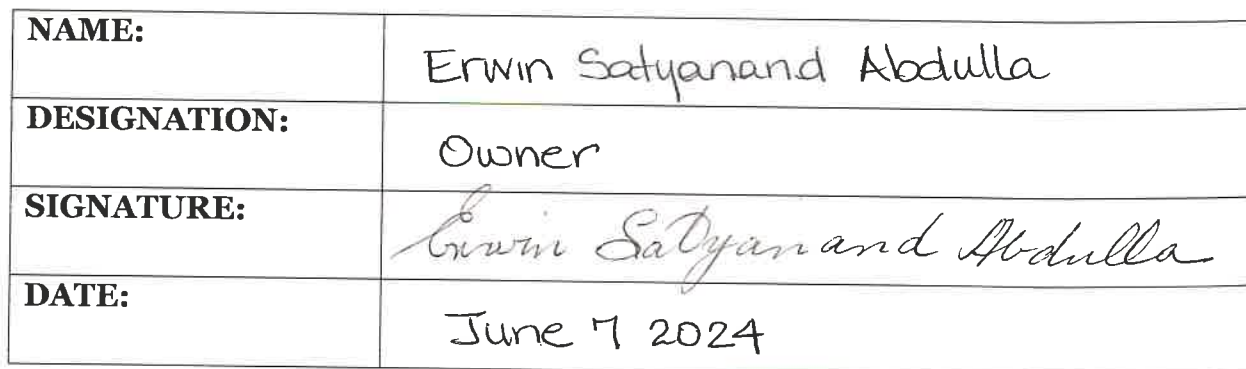 NAME: Erwin Satyanand Abdulla
DESIGNATION: Owner
SIGNATURE: Erwin Satyanand Abdulla
DATE: June 7 2024